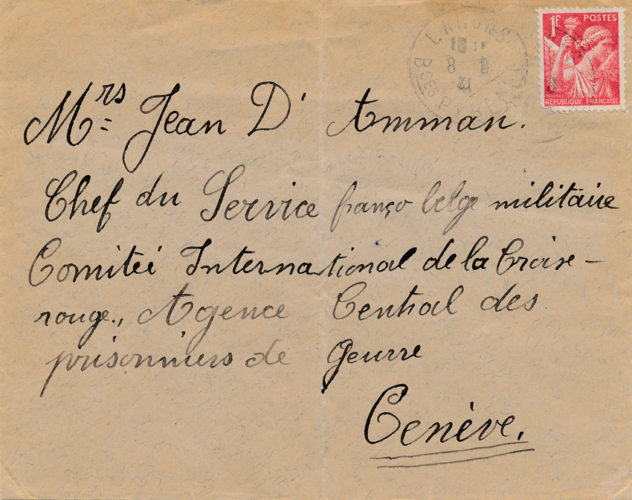 1F POSTES
RÉPUBLIQUE FRANÇAISE
8 - 8
41
Mrs Jean D' Amman.
Chef du Service franço belge militaire
Comiteé International de la Croixe-
rouge., Agence Central des
prisonniers de geurre
Cenève.